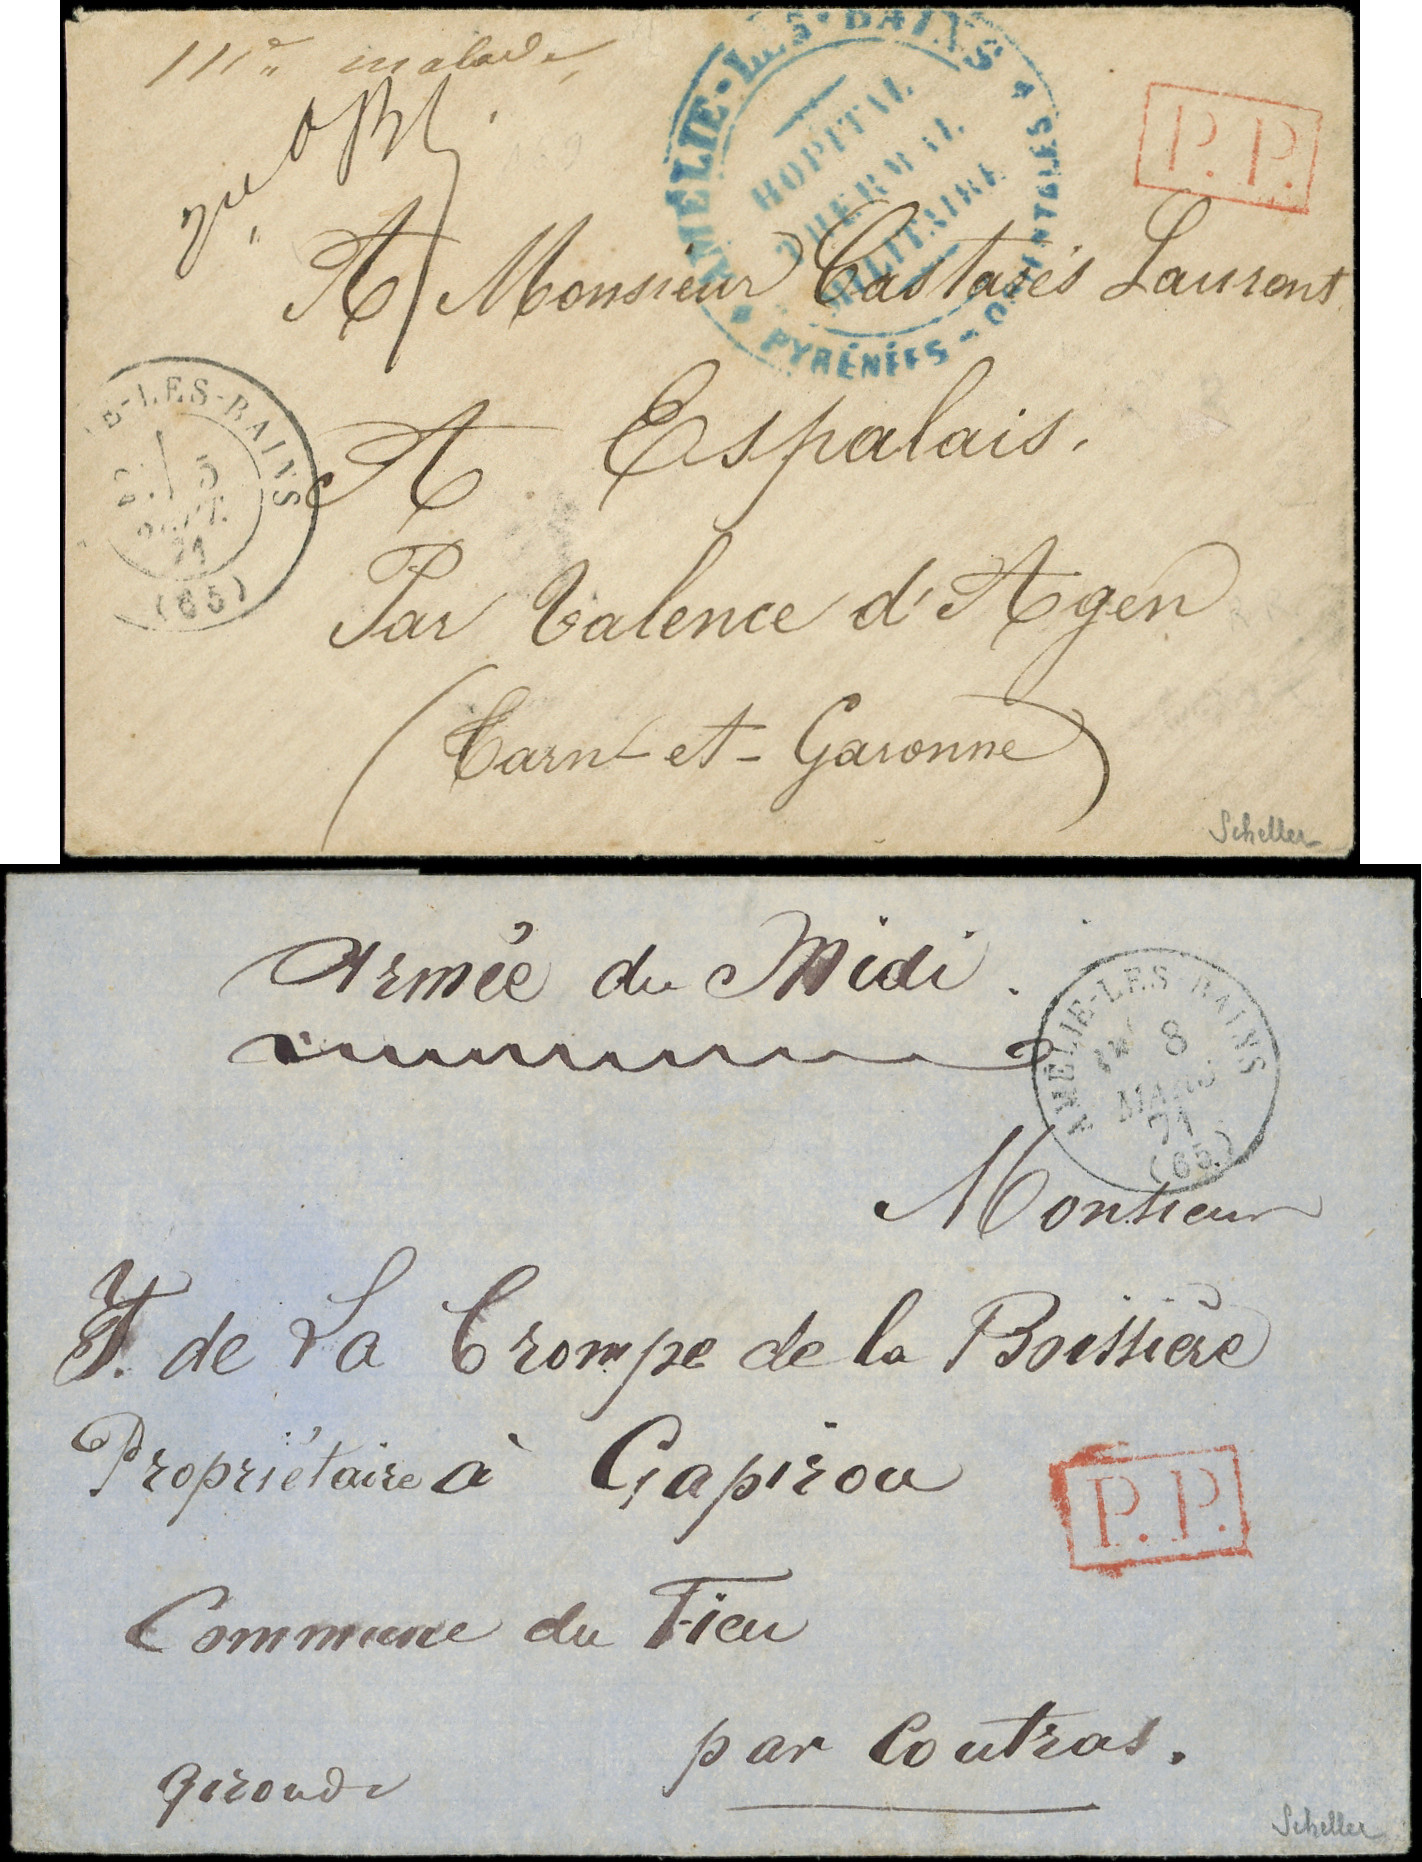 malade
AMÉLIE-LES-BAINS
HOPITAL
THERMAL
MILITAIRE
PYRÉNÉES-ORIENTALES
P.P.
Vu
A Monsieur Castarés Laurent
E-LES-BAINS
5
SEPT.
71
(65)
A Espalais.
Par Valence d'Agen
(Tarn-et-Garonne)
Scheller
Armée du Midi.
AMÉLIE-LES-BAINS
8
MARS
71
(65)
Monsieur
F. de La Crompe de la Boissière
Propriétaire à Gapirou
P.P.
Commune du Fieu
par Coutras.
Gironde
Scheller